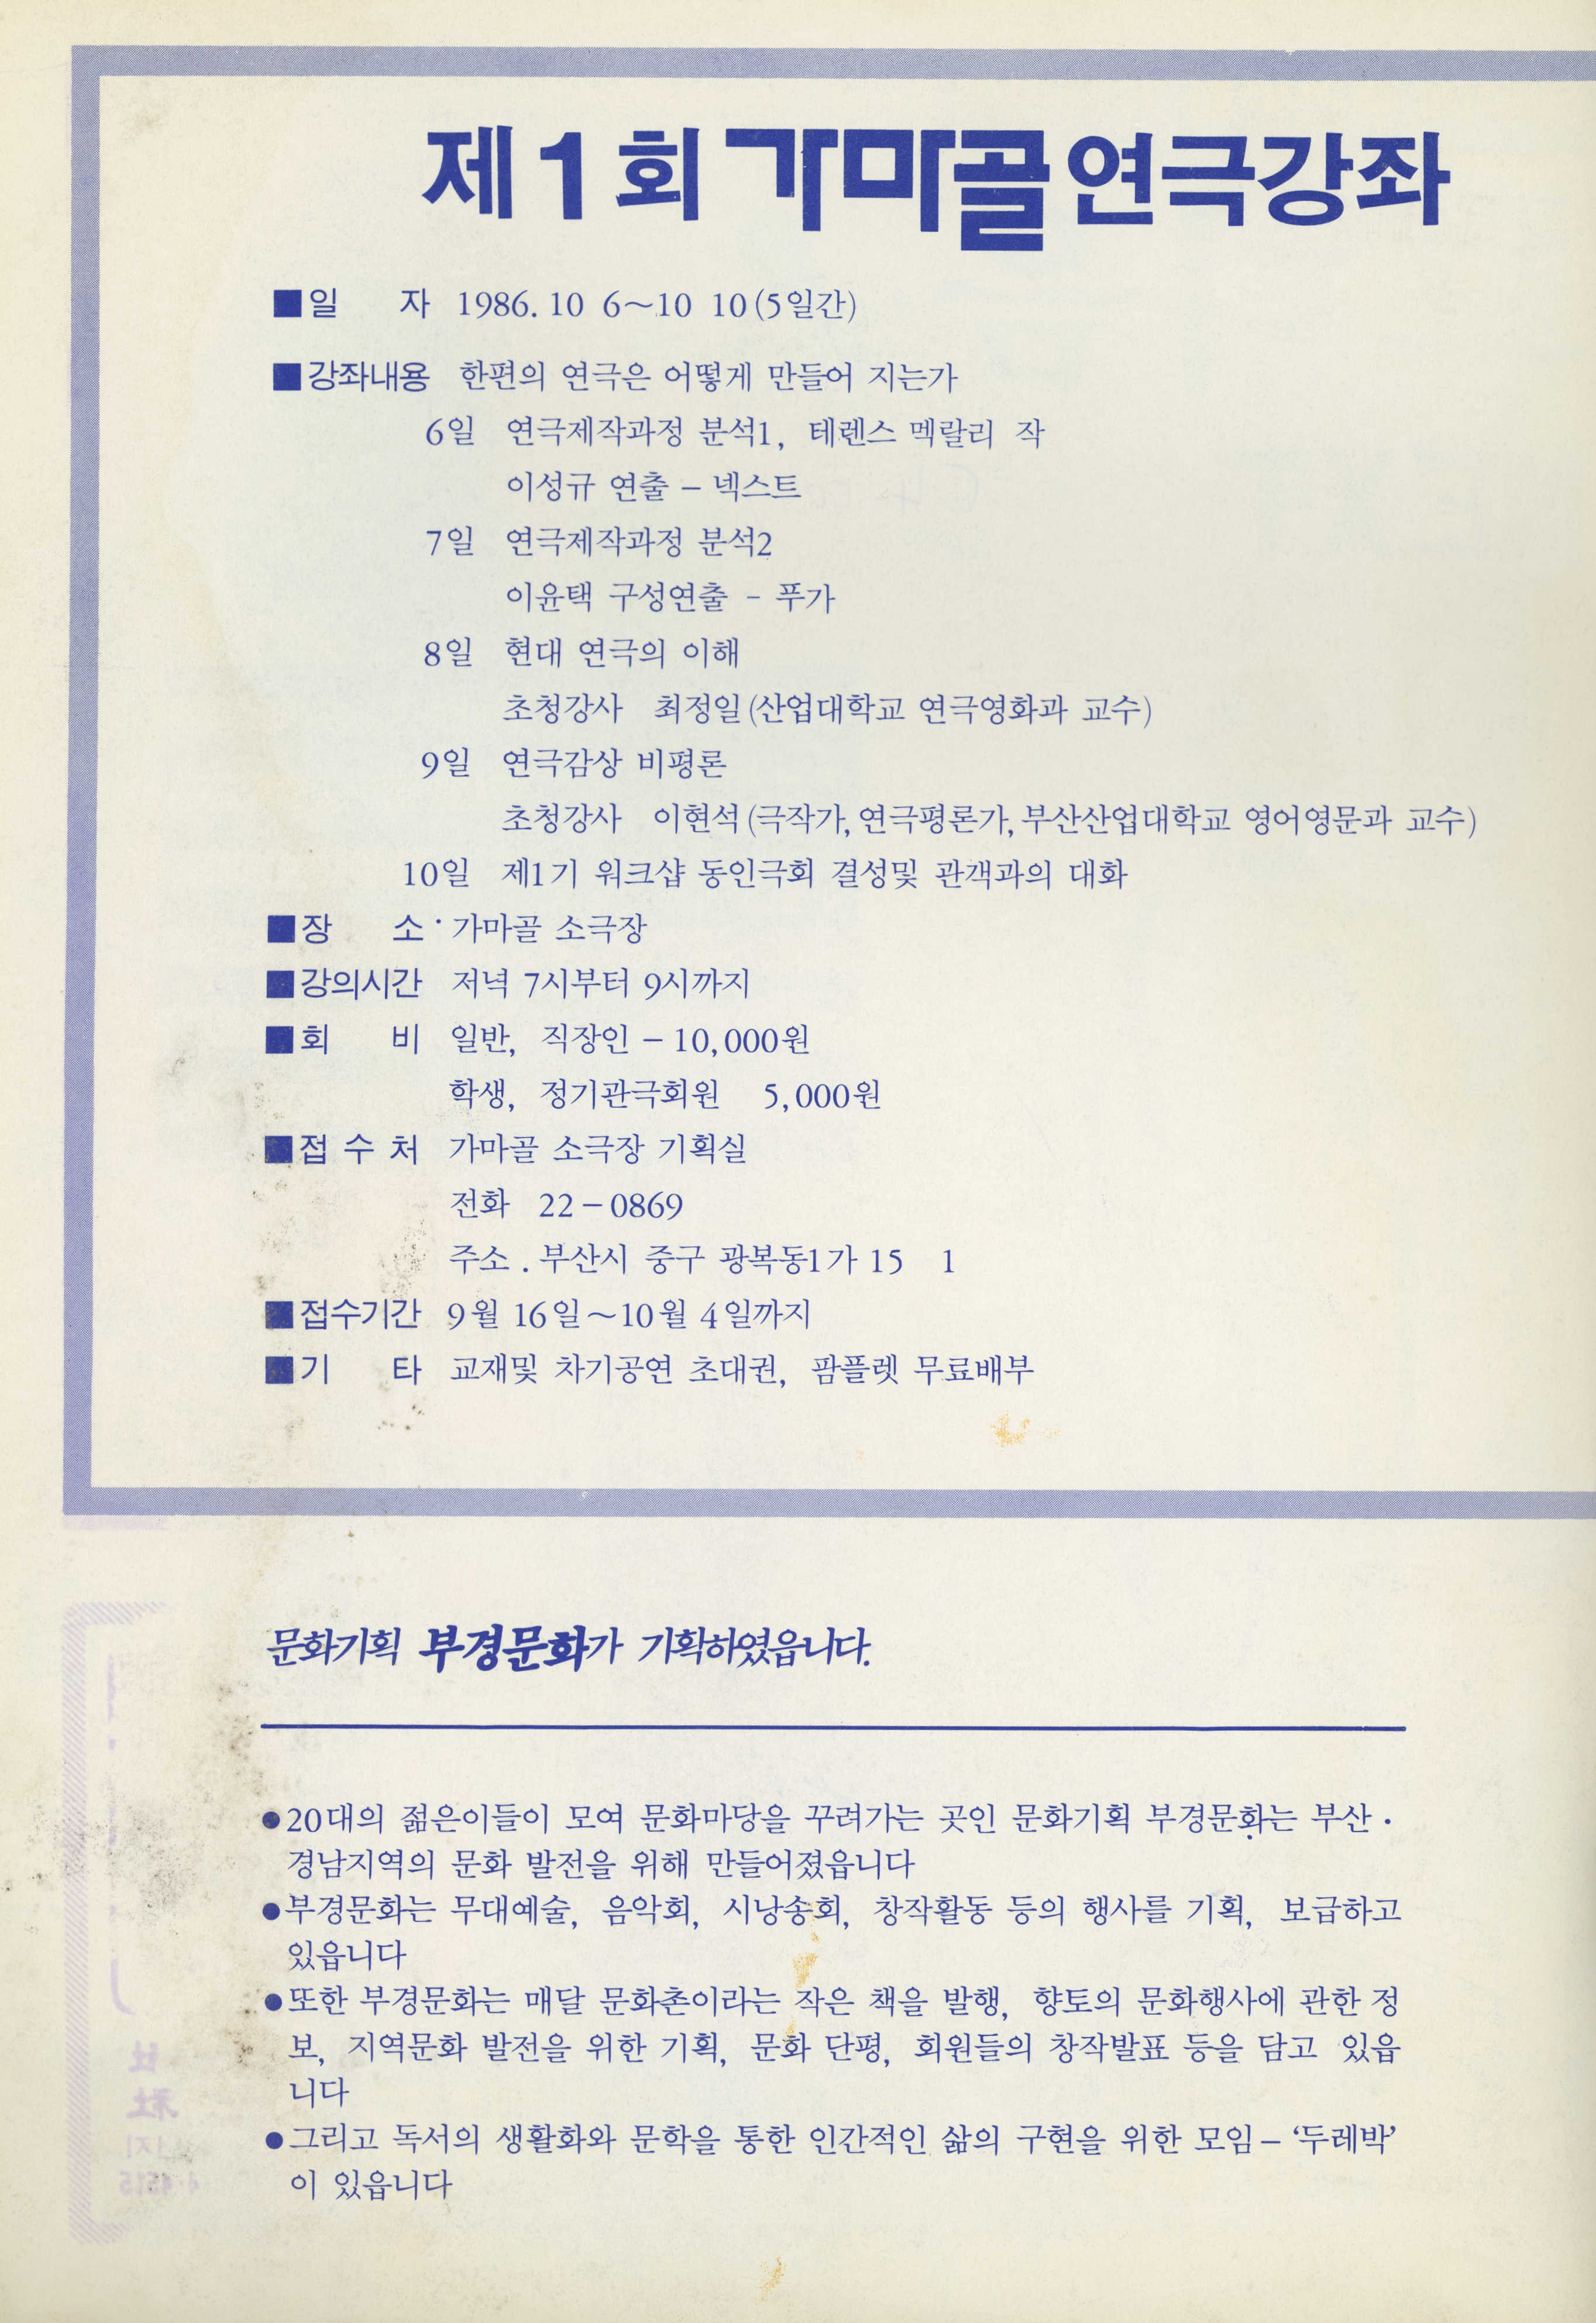 제1회 가마골 연극강좌
■일 자 1986. 10 6~10 10 (5일간)
■강좌내용 한편의 연극은 어떻게 만들어 지는가
6일 연극제작과정 분석1, 테렌스 멕랄리 작
이성규 연출 – 넥스트
7일 연극제작과정 분석2
이윤택 구성연출 - 푸가
8일 현대 연극의 이해
초청강사 최정일 (산업대학교 연극영화과 교수)
9일 연극감상 비평론
초청강사 이현석 (극작가, 연극평론가, 부산산업대학교 영어영문과 교수)
10일 제1기 워크샵 동인극회 결성및 관객과의 대화
■장 소· 가마골 소극장
■강의시간 저녁 7시부터 9시까지
■회 비 일반, 직장인 – 10,000원
학생, 정기관극회원 5,000원
■접 수 처 가마골 소극장 기획실
전화 22 – 0869
주소 . 부산시 중구 광복동1가 15 1
■접수기간 9월 16일~10월 4일까지
■기 타 교재및 차기공연 초대권, 팜플렛 무료배부
문화기획 부경문화가 기획하였읍니다.
●20대의 젊은이들이 모여 문화마당을 꾸려가는 곳인 문화기획 부경문화는 부산·
경남지역의 문화 발전을 위해 만들어졌읍니다
●부경문화는 무대예술, 음악회, 시낭송회, 창작활동 등의 행사를 기획, 보급하고
있읍니다
●또한 부경문화는 매달 문화촌이라는 작은 책을 발행, 향토의 문화행사에 관한 정
보, 지역문화 발전을 위한 기획, 문화 단평, 회원들의 창작발표 등을 담고 있읍
니다
●그리고 독서의 생활화와 문학을 통한 인간적인 삶의 구현을 위한 모임 – ‘두레박’
이 있읍니다